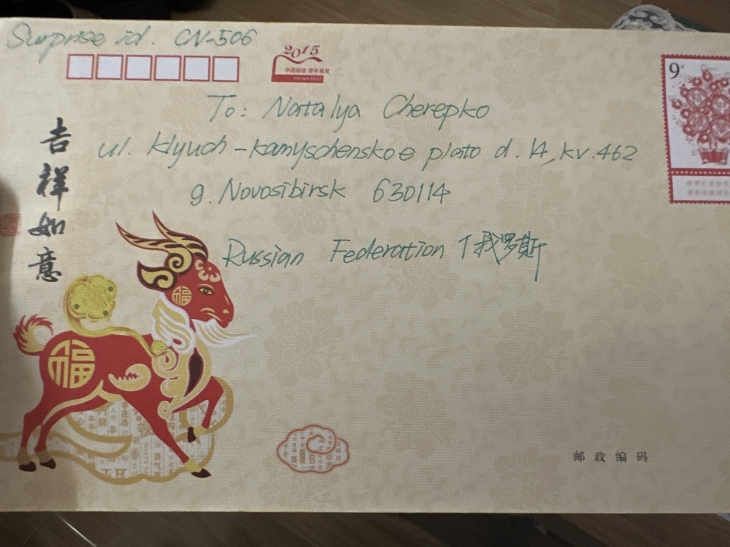 Surprise id. CN-506
2015
中国邮政 贺年有奖
CHINA POST
9
To: Natalya Cherepko
ul. Klyuch-kamyschenskoe plato d. 14, kv. 462
g. Novosibirsk 630114
Russian Federation 俄罗斯
吉祥如意
福
福
邮政编码